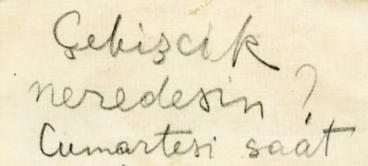 Şekişcik
neredesin?
Cumartesi saat